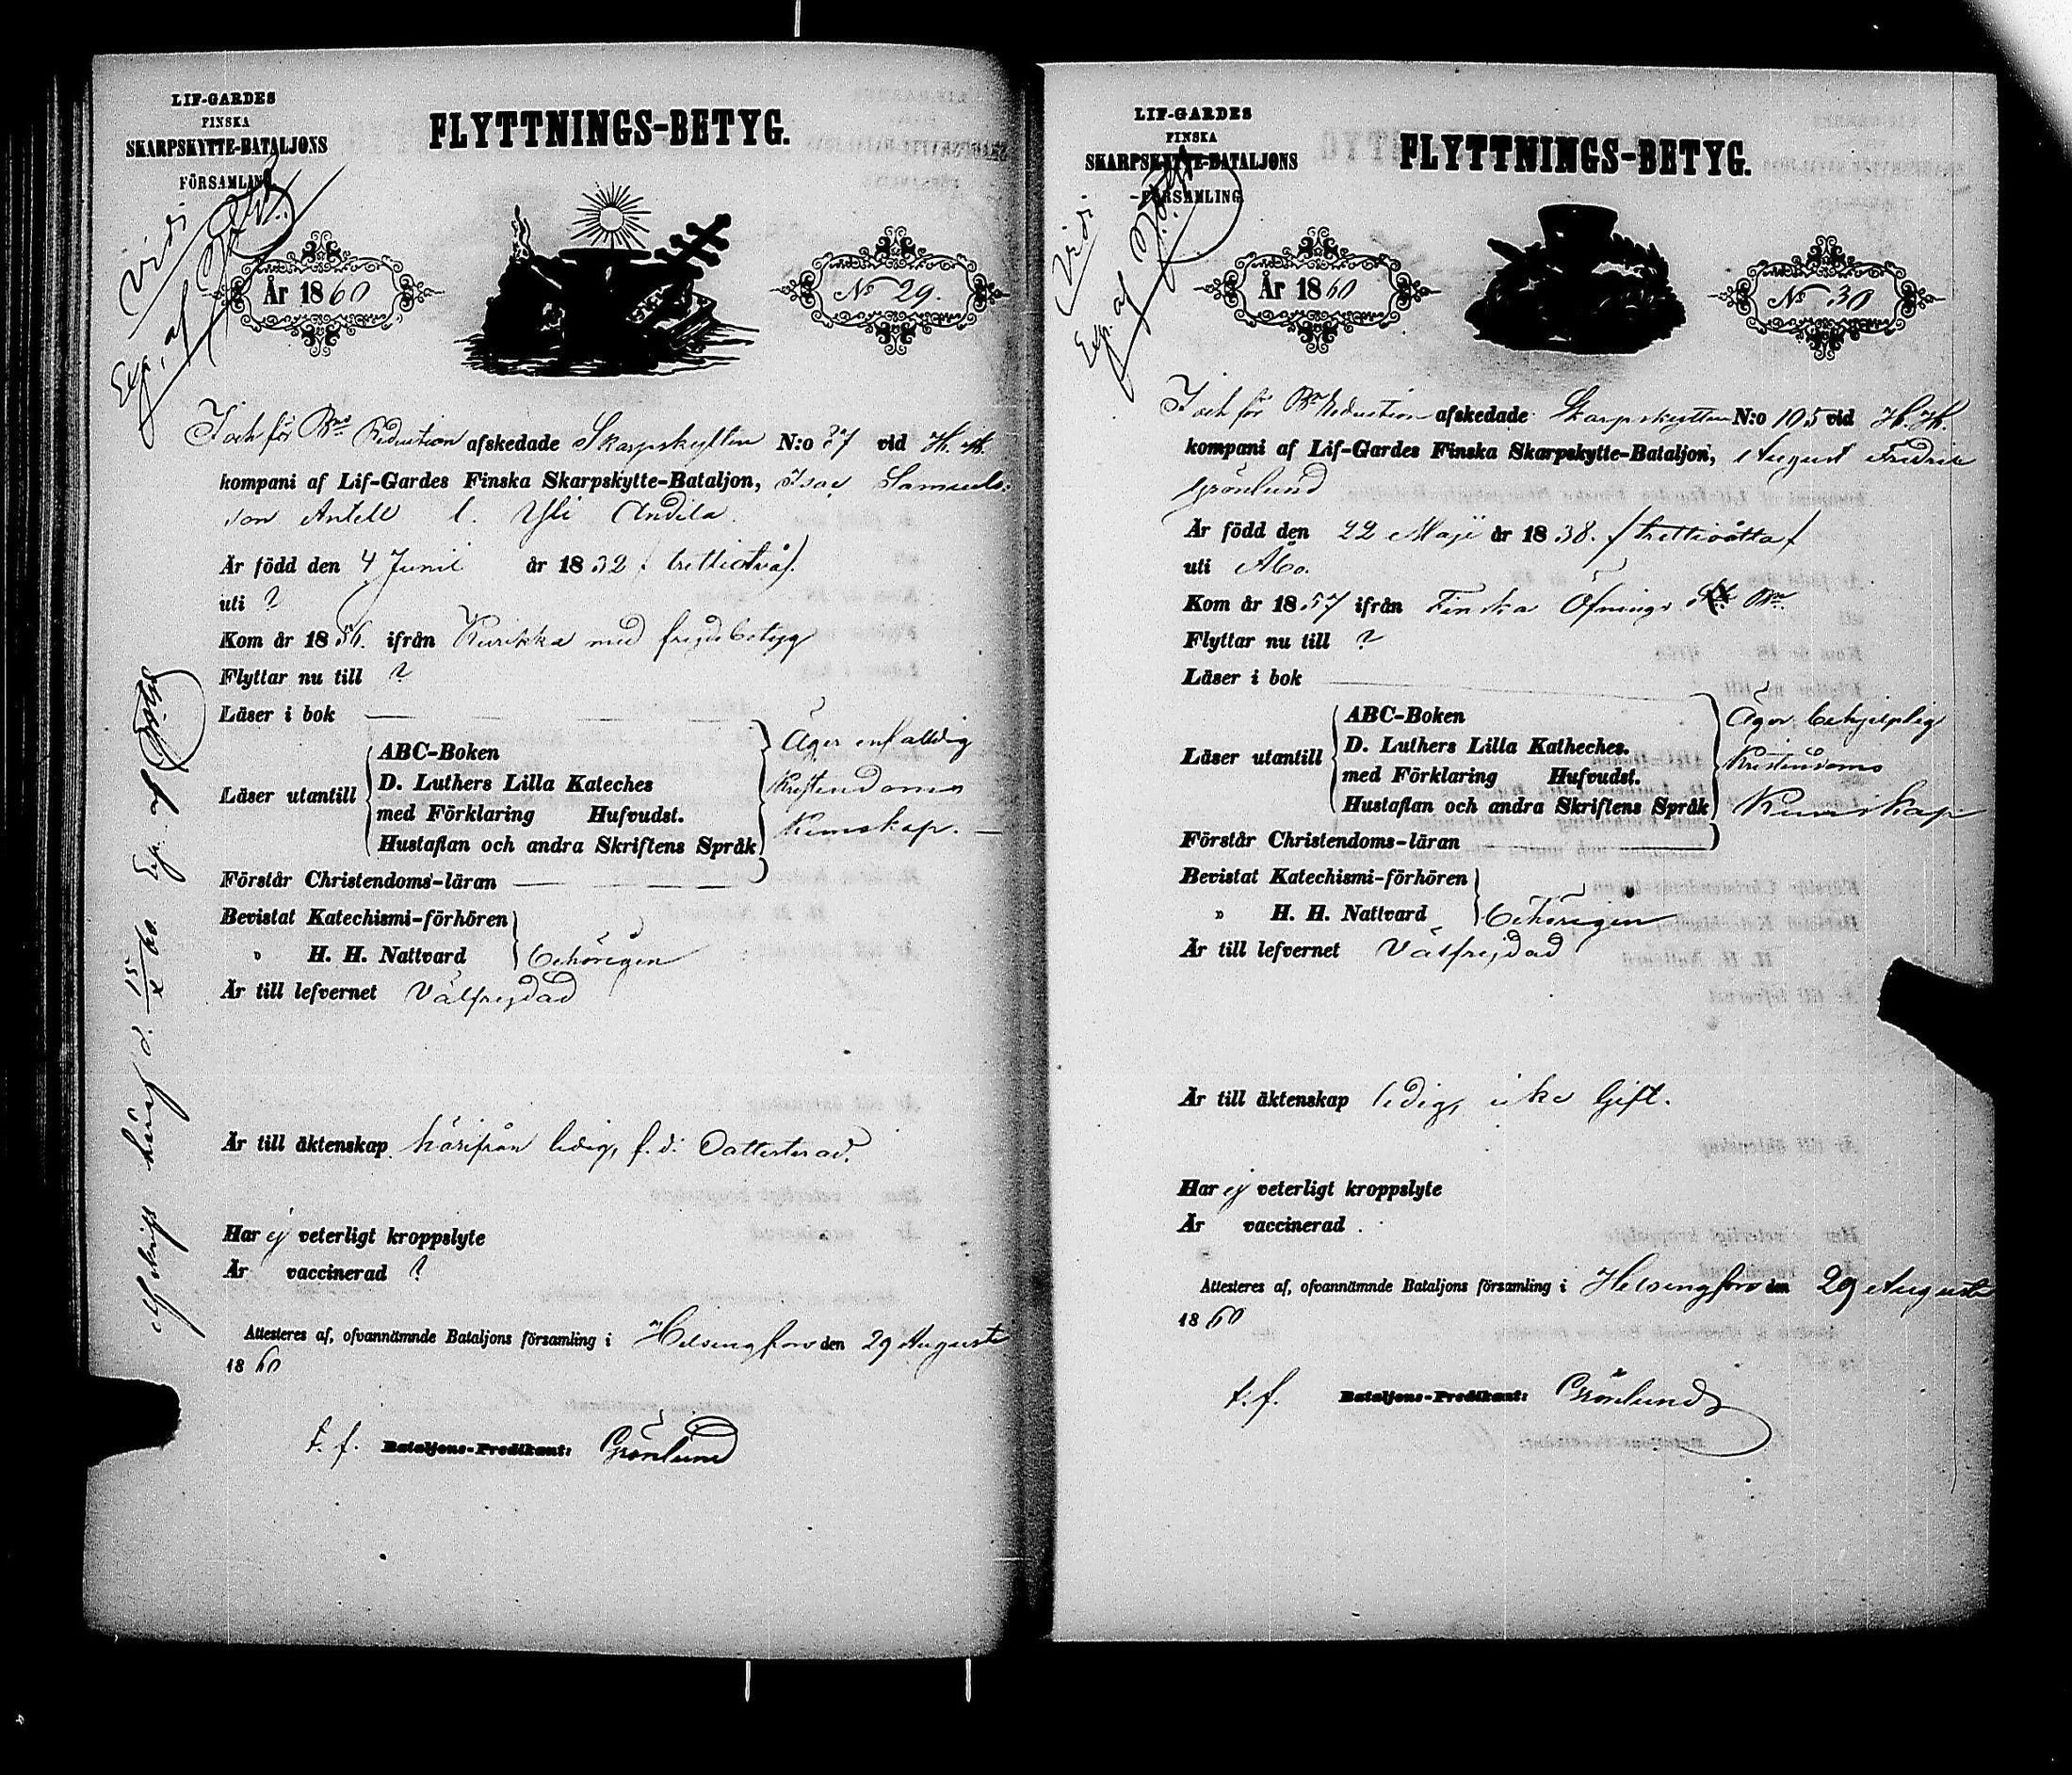 LIF-GARDES
FINSKA
SKARPSKYTTE-BATALJONS
FÖRSAMLING
FLYTTNINGS-BETYG.
Vidi
Exp. af
År 1860
No 29.
I och för Bns Reduction afskedade Skarpskytten N:o 37 vid H. H.
kompani af Lif-Gardes Finska Skarpskytte-Bataljon, Isac Samuels-
son Antell l. Yli Andila.
Är född den 4 Junii år 1832 (trettiotvå).
uti ?
Kom år 1856. ifrån Kurikka med frejdebetyg
Flyttar nu till ?
Läser i bok
Läser utantill
ABC-Boken
D. Luthers Lilla Kateches
med Förklaring Hufvudst.
Hustaflan och andra Skriftens Språk
Äger enfaldig
Kristendoms
Kunskap.
Förstår Christendoms-läran
Bevistat Katechismi-förhören
" H. H. Nattvard
behörigen
Är till lefvernet Välfrejdad
Är till äktenskap härifrån ledig, f. d.
Har ej veterligt kroppslyte
Är vaccinerad ?
Attesteres af, ofvannämnde Bataljons församling i Helsingfors den 29 Augusti
1860
t. f. Bataljons-Predikant: Grönlund
Afskrift häraf d. 15/X 60. Exp. af
LIF-GARDES
FINSKA
SKARPSKYTTE-BATALJONS
-FÖRSAMLING
FLYTTNINGS-BETYG.
Vidi
Exp. af
År 1860
No 30
I och för Bns Reduction afskedade Skarpskytten N:o 105 vid H. H.
kompani af Lif-Gardes Finska Skarpskytte-Bataljon, August Fredrik
Grönlund
Är född den 22 Maji år 1838. (trettioåtta)
uti Åbo.
Kom år 1857 ifrån Finska Öfnings Bn.
Flyttar nu till ?
Läser i bok
Läser utantill
ABC-Boken
D. Luthers Lilla Katheches.
med Förklaring Hufvudst.
Hustaflan och andra Skriftens Språk
Äger behjelplig
Kristendoms
Kunskap
Förstår Christendoms-läran
Bevistat Katechismi-förhören
" H. H. Nattvard
behörigen
Är till lefvernet Välfrejdad
Är till äktenskap ledig, icke Gift.
Har ej veterligt kroppslyte
Är vaccinerad
Attesteres af, ofvannämnde Bataljons församling i Helsingfors den 29 Augusti
1860
t. f. Bataljons-Predikant: Grönlund